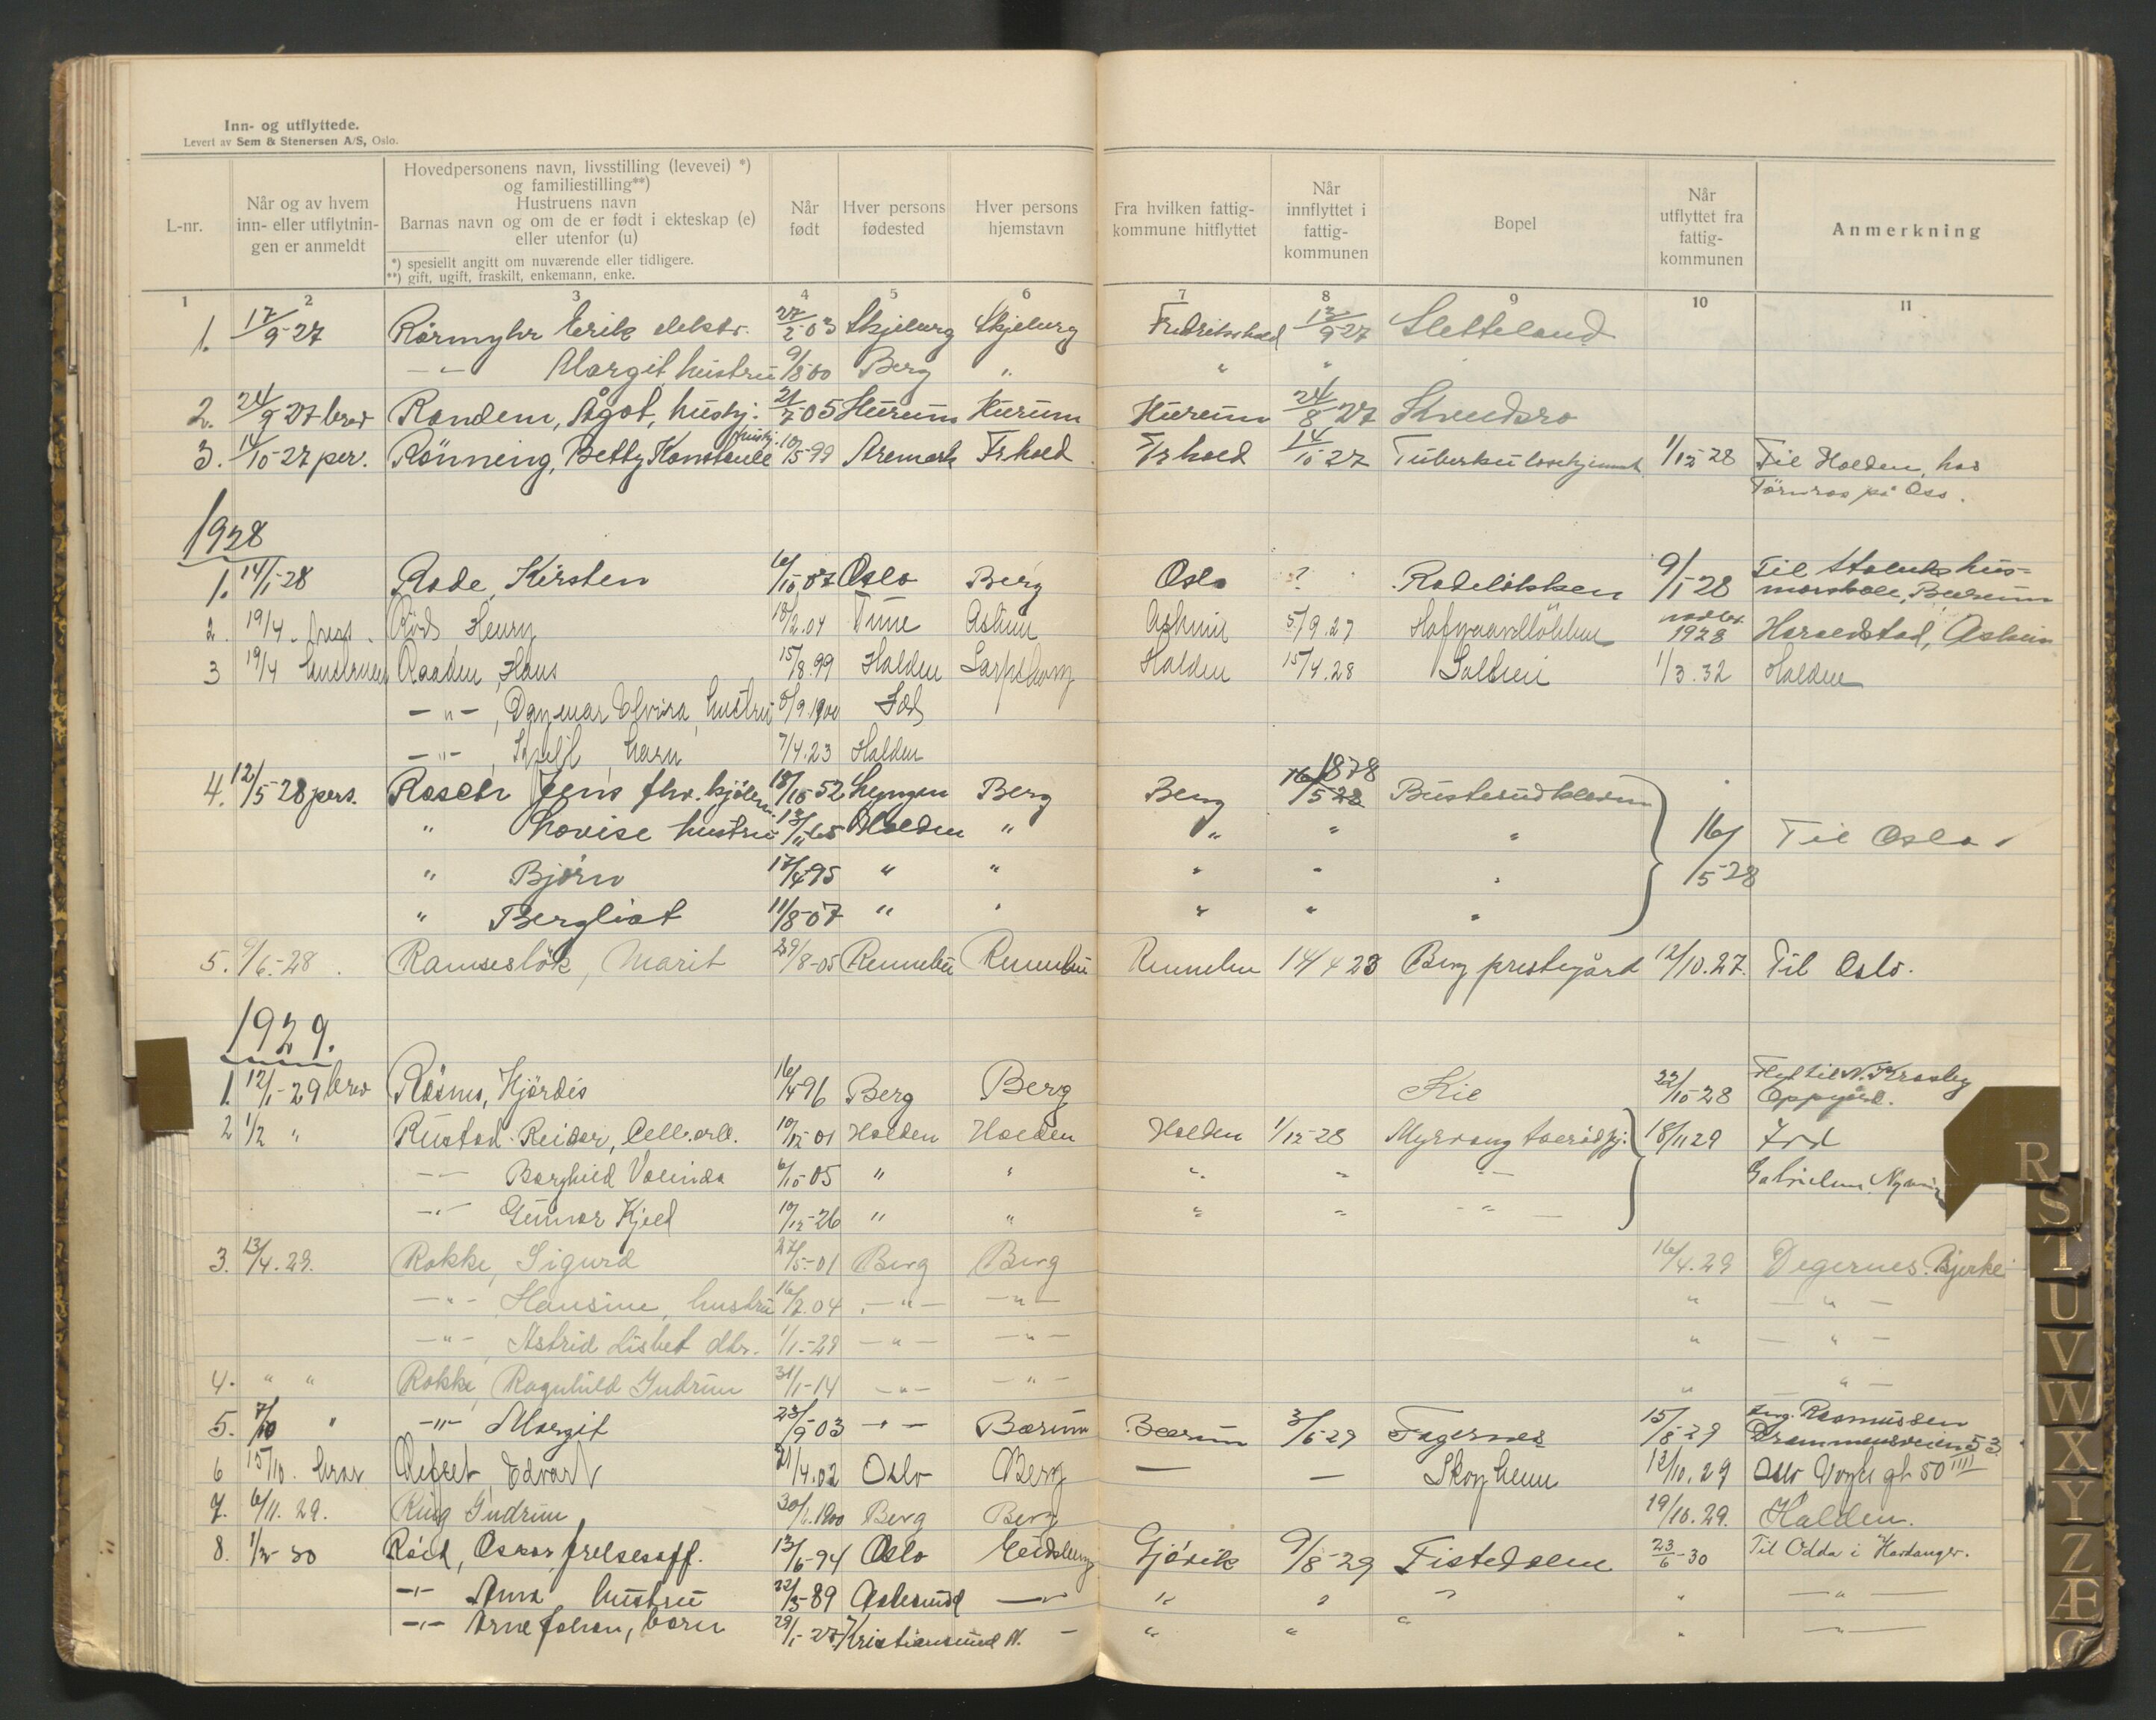 Inn- og utflyttede.
Levert av Sem & Stenersen A/S, Oslo.
L-nr.
Når og av hvem inn- eller utflytnin-gen er anmeldt
Hovedpersonens navn, livsstilling (levevei) *) og familiestilling**)
Hustruens navn
Barnas navn og om de er født i ekteskap (e) eller utenfor (u)
*) spesiellt angitt om nuværende eller tidligere.
**) gift, ugift, fraskilt, enkemann, enke.
Når født
Hver persons fødested
Hver persons hjemstavn
Fra hvilken fattig-kommune hitflyttet
Når innflyttet i fattig-kommunen
Bopel
Når utflyttet fra fattig-kommunen
Anmerkning
1 2 3 4 5 6 7 8 9 10 11
1. 17/9-27 Rörmyhr Erik elektr. 27/2-03 Skjeberg Skjeberg Fredrikshald 13/9-27 Sletteland
-"- Margit hustru 9/8-00 Berg " " "
2. 24/9-27 brev Randem, Ågot, hushj. 21/7-05 Hurum Hurum Hurum 24/8-27
3. 14/10-27 per. Rönning, Betty Konstanse hushj. 10/5-99 Aremark Fr.hald Fr hald 14/10-27 Tuberkulosehjemmet 1/12-28 Til Halden, hos
Törnros på Oss.
1928
1. 14/1-28 Rode, Kirsten 6/10-07 Oslo Berg Oslo ? Rodelökken 9/1-28 Til Stabæk hus-
morskole, Bærum
2. 19/4 Röd Henry 10/2.04 Tune Askim Askim 5/9.27 novbr. 1928 Haraldstad, Askim
3 19/4 Raaden, Hans 15/8.99 Halden Sarpsborg Halden 15/4.28 1/3.32 Halden
-"-, Dagmar Elvira, hustru 8/9.1900
-"-, Kjell, barn 7/4.23 Halden
4. 12/5-28 pers. Rasch Jens fhv. kjöbm. 18/10-52 Lyngen Berg Berg 16/5-28 1878 Busterudkleven
" Lovise hustru 13/11-65 Halden " " " " 16/5-28 Til Oslo.
" Björn 17/4-95 " " " " "
" Bergliot 11/8-07 " " " " "
5. 9/6-28. Ramseslök, Marit 29/8-05 Rennebu Rennebu Rennebu 14/4 23 Berg prestegård 12/10.27. Til Oslo.
1929.
1. 12/1-29 brev Rösnes, Hjördis 16/4-96 Berg Berg Kie 22/10-28 Flyt til N. Kraaby
Oppgård.
2 1/2 " Rustad Reidar, Cell.arb. 10/12-01 Halden Halden Halden 1/12-28 Myrvang 18/11 29 Idd
-"- Borghild Valinda 6/10-05 " " " " -"- Gabrielsen
-"- Gunnar Kjell 10/12-26 " " " " -"-
3. 13/4.29. Rokke, Sigurd 27/5-01 Berg Berg 16/4.29 Degernes. Bjerke
-"- Hansine, hustru 16/2.04 -"- -"- " -"-
-"- Astrid Lisbet dtr. 1/1-29 -"- -"- " -"-
4. " " Rokke, Ragnhild Gudrun 31/1-14 -"- -"- " -"-
5. 7/10 " -"- Margit 23/9-03 -"- Bærum Bærum 3/6-29 Fagernes 15/8-29 Ing. Rasmussen
Drammensveien 53
6 15/10. brev Refset, Edvard 21/4.02 Oslo Berg — — Skogheim 12/10.29 Oslo Vogts gt 50 III
7. 6/11. 29. Ring Gudrun 30/6.1900 Berg Berg 19/10.29. Halden.
8. 1/2-30 Röed, Oskar, frelsesoff. 13/6-94 Oslo Eidsberg Gjövik 9/8-29 Tistedalen 23/6-30 Til Odda i Hardanger.
-"- Anna hustru 22/3-89 Aalesund -"- " " " " -"-
-"- Arne Johan, barn 29/1-27 Kristiansund N. - " " " " -"-
R
S
T
U
V
W
X
Y
Z
Æ